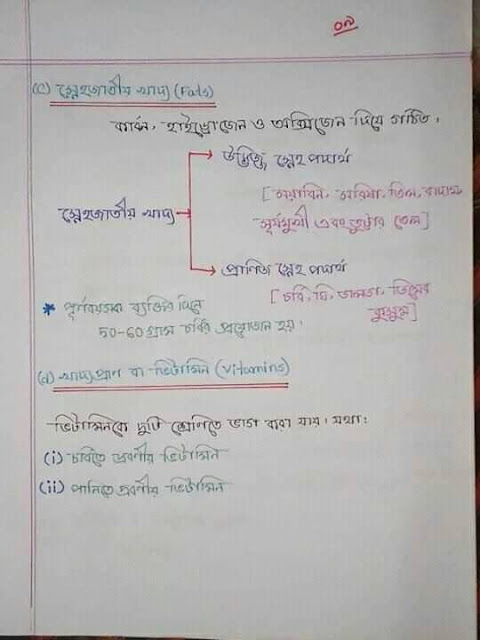 ০৯
(c) স্নেহজাতীয় খাদ্য (Fats)
কার্বন, হাইড্রোজেন ও অক্সিজেন দিয়ে গঠিত।
উদ্ভিজ্জ স্নেহ পদার্থ
[সয়াবিন, সরিষা, তিল, বাদাম,
সূর্যমুখী এবং ভুট্টার তেল]
স্নেহজাতীয় খাদ্য
প্রাণিজ স্নেহ পদার্থ
[চর্বি, ঘি, ডালডা, ডিমের
কুসুম]
* পূর্ণবয়স্ক ব্যক্তির দিনে
50-60 গ্রাম চর্বির প্রয়োজন হয়।
(d) খাদ্যপ্রাণ বা ভিটামিন (Vitamins)
ভিটামিনকে দুটি শ্রেণিতে ভাগ করা যায়। যথা:
(i) চর্বিতে দ্রবণীয় ভিটামিন
(ii) পানিতে দ্রবণীয় ভিটামিন